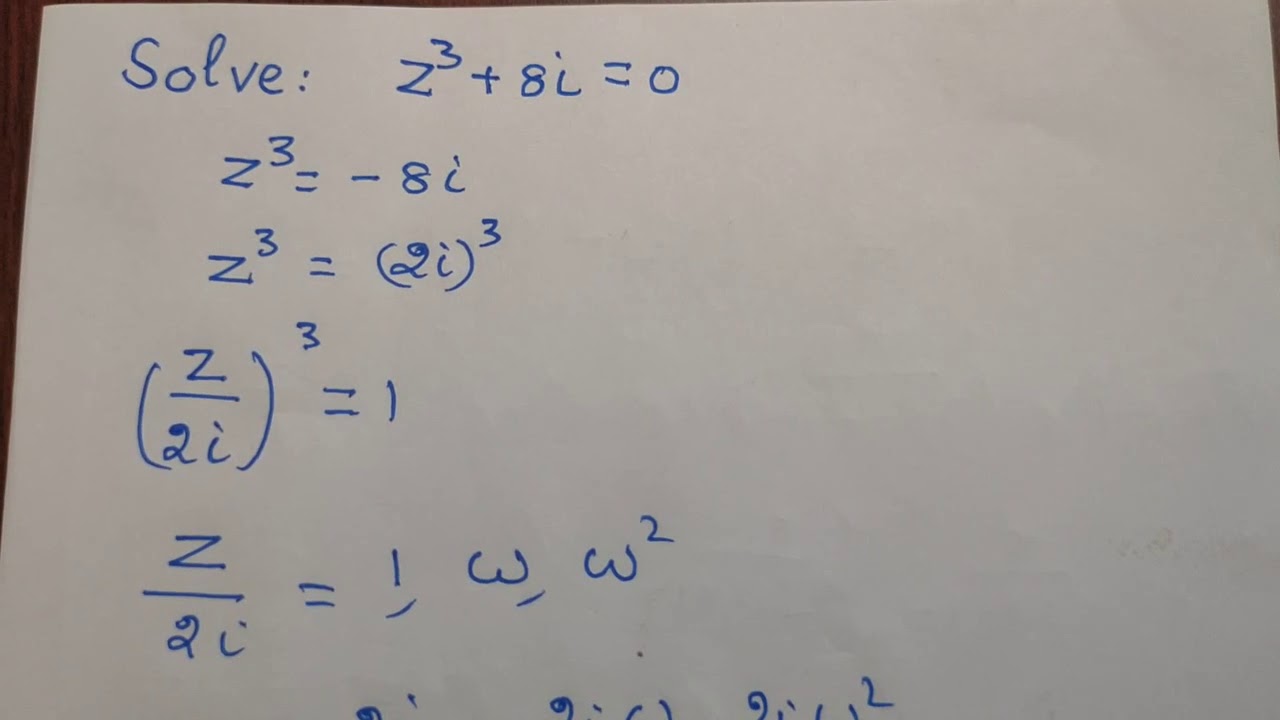 Solve: z³ + 8i = 0
z³ = - 8i
z³ = (2i)³
(z/2i)³ = 1
z/2i = 1, ω, ω²